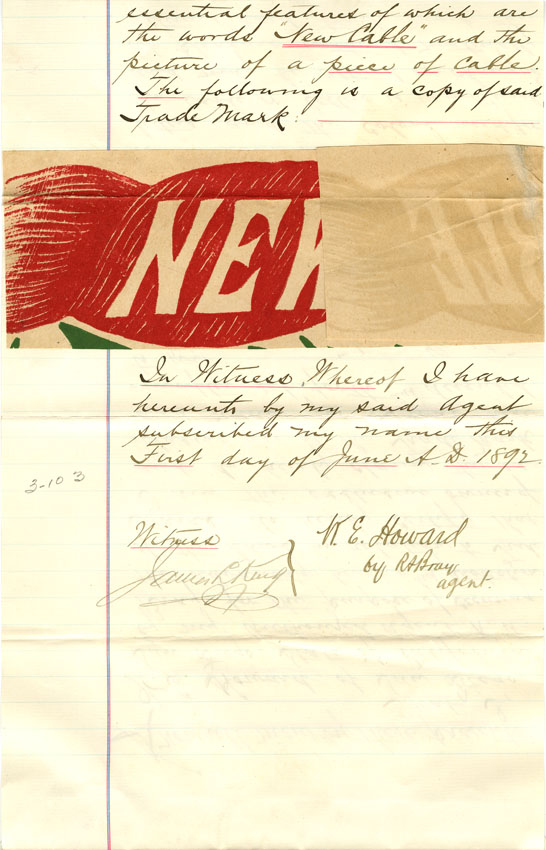 essential features of which are
the words "New Cable" and the
picture of a piece of Cable.
The following is a copy of said
Trade Mark:
NEW
In Witness Whereof I have
hereunto by my said Agent
subscribed my name this
First day of June A.D. 1892
3-103
Witness
James L. King
W. E. Howard
by R H Bray
agent.